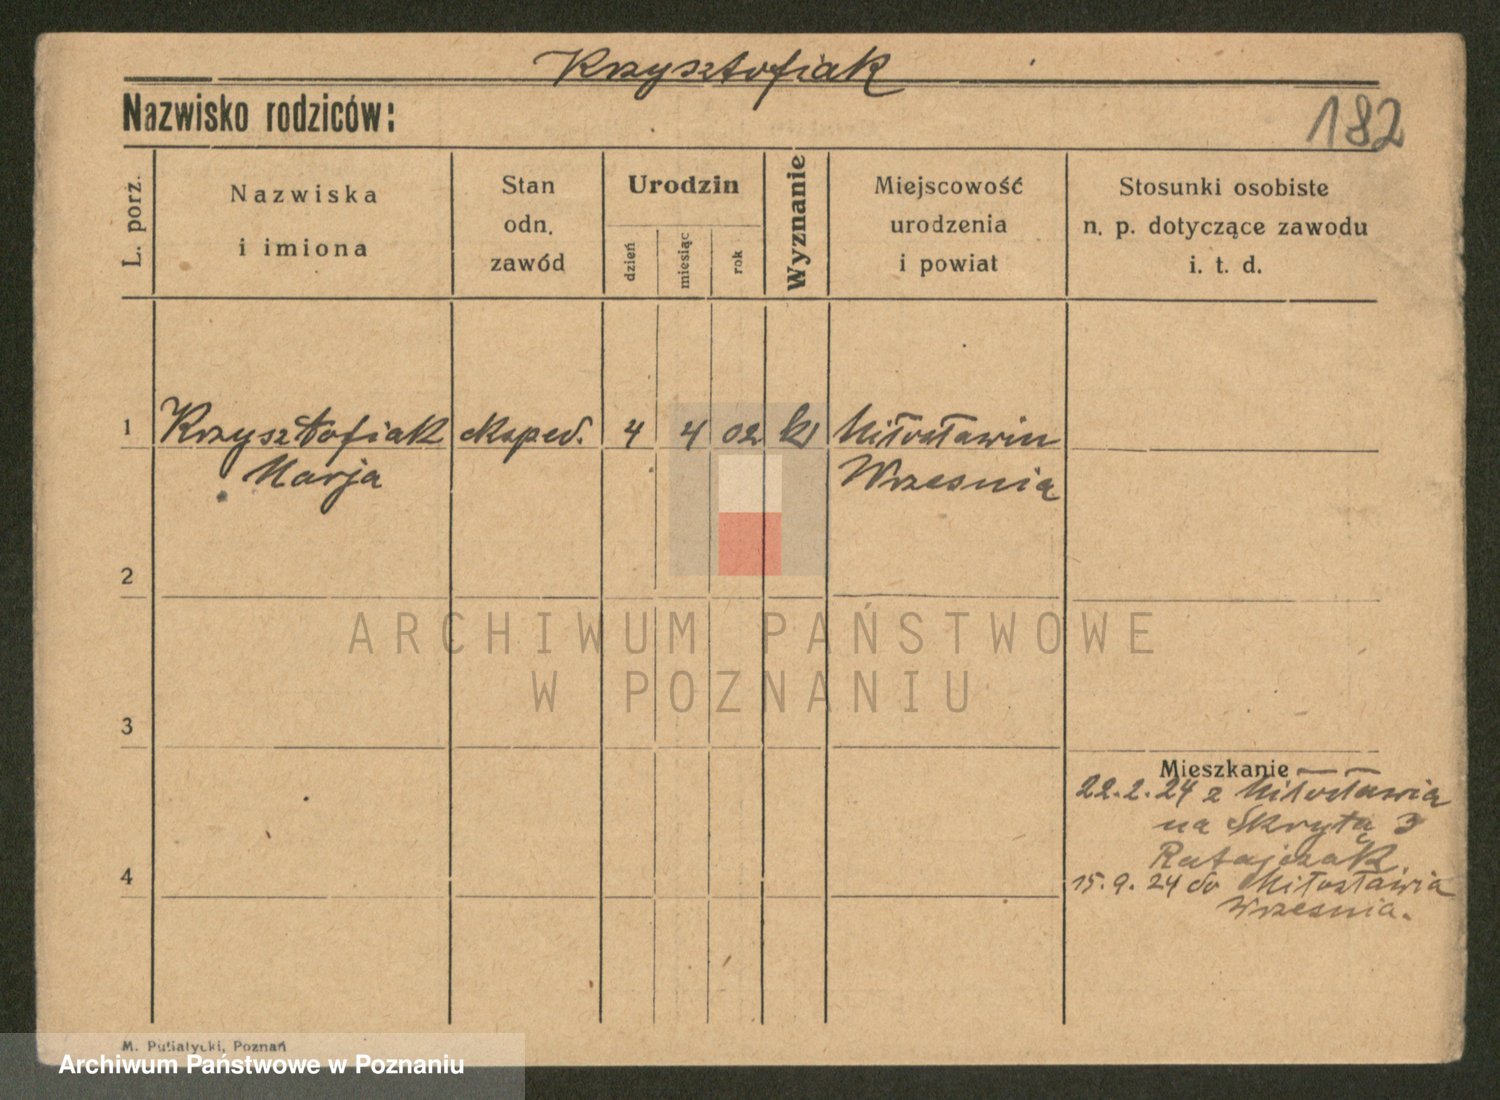 Krzysztofiak
Nazwisko rodziców:
182
L. porz.
Nazwiska
i imiona
Stan
odn.
zawód
Urodzin
dzień
miesiąc
rok
Wyznanie
Miejscowość
urodzenia
i powiat
Stosunki osobiste
n. p. dotyczące zawodu
i. t. d.
1 Krzysztofiak eksped. 4 4 02 k Miłosławiu
Marja Wrzesnia
2
ARCHIWUM PAŃSTWOWE
W POZNANIU
3
Mieszkanie
22.2.24 z Miłosławia
na Skrytą 3
Ratajczak
4
15.9.24 do Miłosławia
Wrzesnia.
M. Putiatycki, Poznań
Archiwum Państwowe w Poznaniu